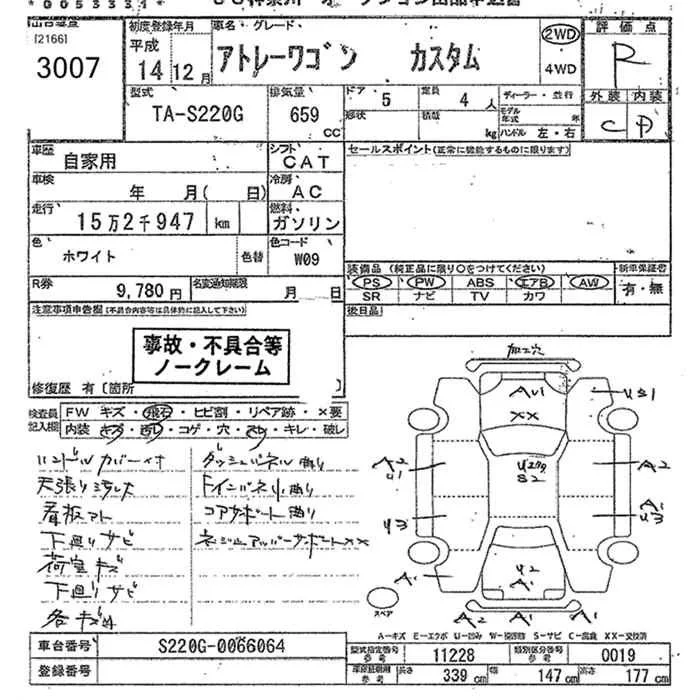 *0053331*
[2166]
3007
初度登録年月
平成
14 12 月
車名・グレード
アトレーワゴン カスタム
2WD
4WD
評価点
R
外装 内装
C D
型式
TA-S220G
排気量
659
cc
ドア
5
定員
4 人
形状
積載
kg
ディーラー・並行
モデル年式 年
ハンドル 左・右
車歴
自家用
シフト
CAT
セールスポイント(正常に機能するものに限ります)
車検
年 月( 日)
冷房
AC
走行
15万2千947 km
燃料
ガソリン
色
ホワイト
色替
色コード
W09
装備品 (純正品に限り○をつけてください)
新車保証書
PS PW ABS エアB AW
SR ナビ TV カワ
有・無
R券
9,780 円
名変通知期限
月 日
後日品
注意事項申告欄(不具合内容等は具体的に記入して下さい)
事故・不具合等
ノークレーム
修復歴 有〔箇所
検査員記入欄
FW キズ・飛石・ヒビ割・リペア跡・×要
内装 キズ・汚れ・コゲ・穴・スレ・キレ・破レ
ハンドルカバー付
天張り汚れ
看板アト
下廻りサビ
荷室キズ
下廻りサビ
ダッシュパネル曲り
インパネル曲り
コアサポート曲り
ラジエアッパーサポートXX
加工穴
AU1
XX
US1
A2
U1
S2
A2
U3
A1
U3
A1
U2
A1
A1
A2 A1
スペア
A-キズ E-エクボ U-凹み W-補修跡 S-サビ C-腐食 XX-交換済
車台番号
S220G-0066064
登録番号
型式指定番号 参考
11228
類別区分番号 参考
0019
車庫証明用 参考
長さ 339 cm
幅 147 cm
高さ 177 cm